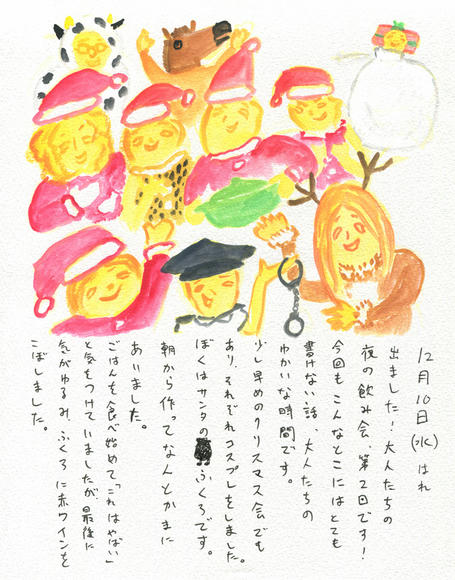 12月10日(水)はれ
出ました！大人たちの
夜の飲み会、第2回です！
今回もこんなとこにはとても
書けない話、大人たちの
ゆかいな時間です。
少し早めのクリスマス会でも
あり、それぞれコスプレをしました。
ぼくはサンタのふくろです。
朝から作ってなんとかまに
ありました。
ごはんを食べ始めて「これはやばい」
と気をつけていましたが、最後に
気がゆるみ、ふくろに赤ワインを
こぼしました。